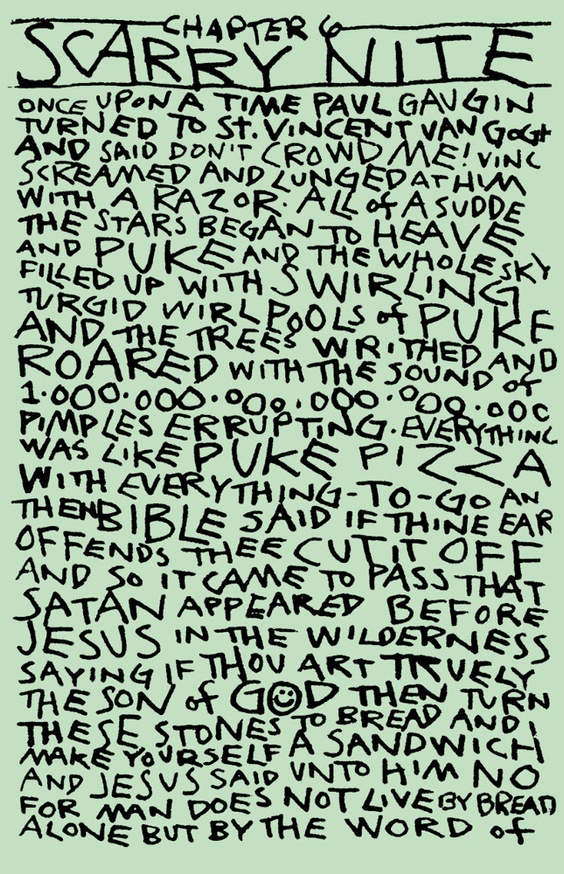 CHAPTER 6
SCARRY NITE
ONCE UPON A TIME PAUL GAUGIN
TURNED TO St. VINCENT VAN GoGH
AND SAID DON'T CROWD ME! VINC
SCREAMED AND LUNGED AT HIM
WITH A RAZOR. ALL of A SUDDE
THE STARS BEGAN TO HEAVE
AND PUKE AND THE WHOLE SKY
FILLED UP WITH SWIRLING
TURGID WIRLPOOLS of PUKE
AND THE TREES WRITHED AND
ROARED WITH THE SOUND of
1.000.000.000.000.000.000
PIMPLES ERRUPTING. EVERYTHING
WAS LIKE PUKE PIZZA
WITH EVERYTHING-TO-GO AN
THEN BIBLE SAID IF THINE EAR
OFFENDS THEE CUT IT OFF
AND SO IT CAME TO PASS THAT
SATAN APPEARED BEFORE
JESUS IN THE WILDERNESS
SAYING IF THOU ART TRUELY
THE SON of GOD THEN TURN
THESE STONES TO BREAD AND
MAKE YOURSELF A SANDWICH
AND JESUS SAID UNTO HIM NO
FOR MAN DOES NOT LIVE BY BREAD
ALONE BUT BY THE WORD of